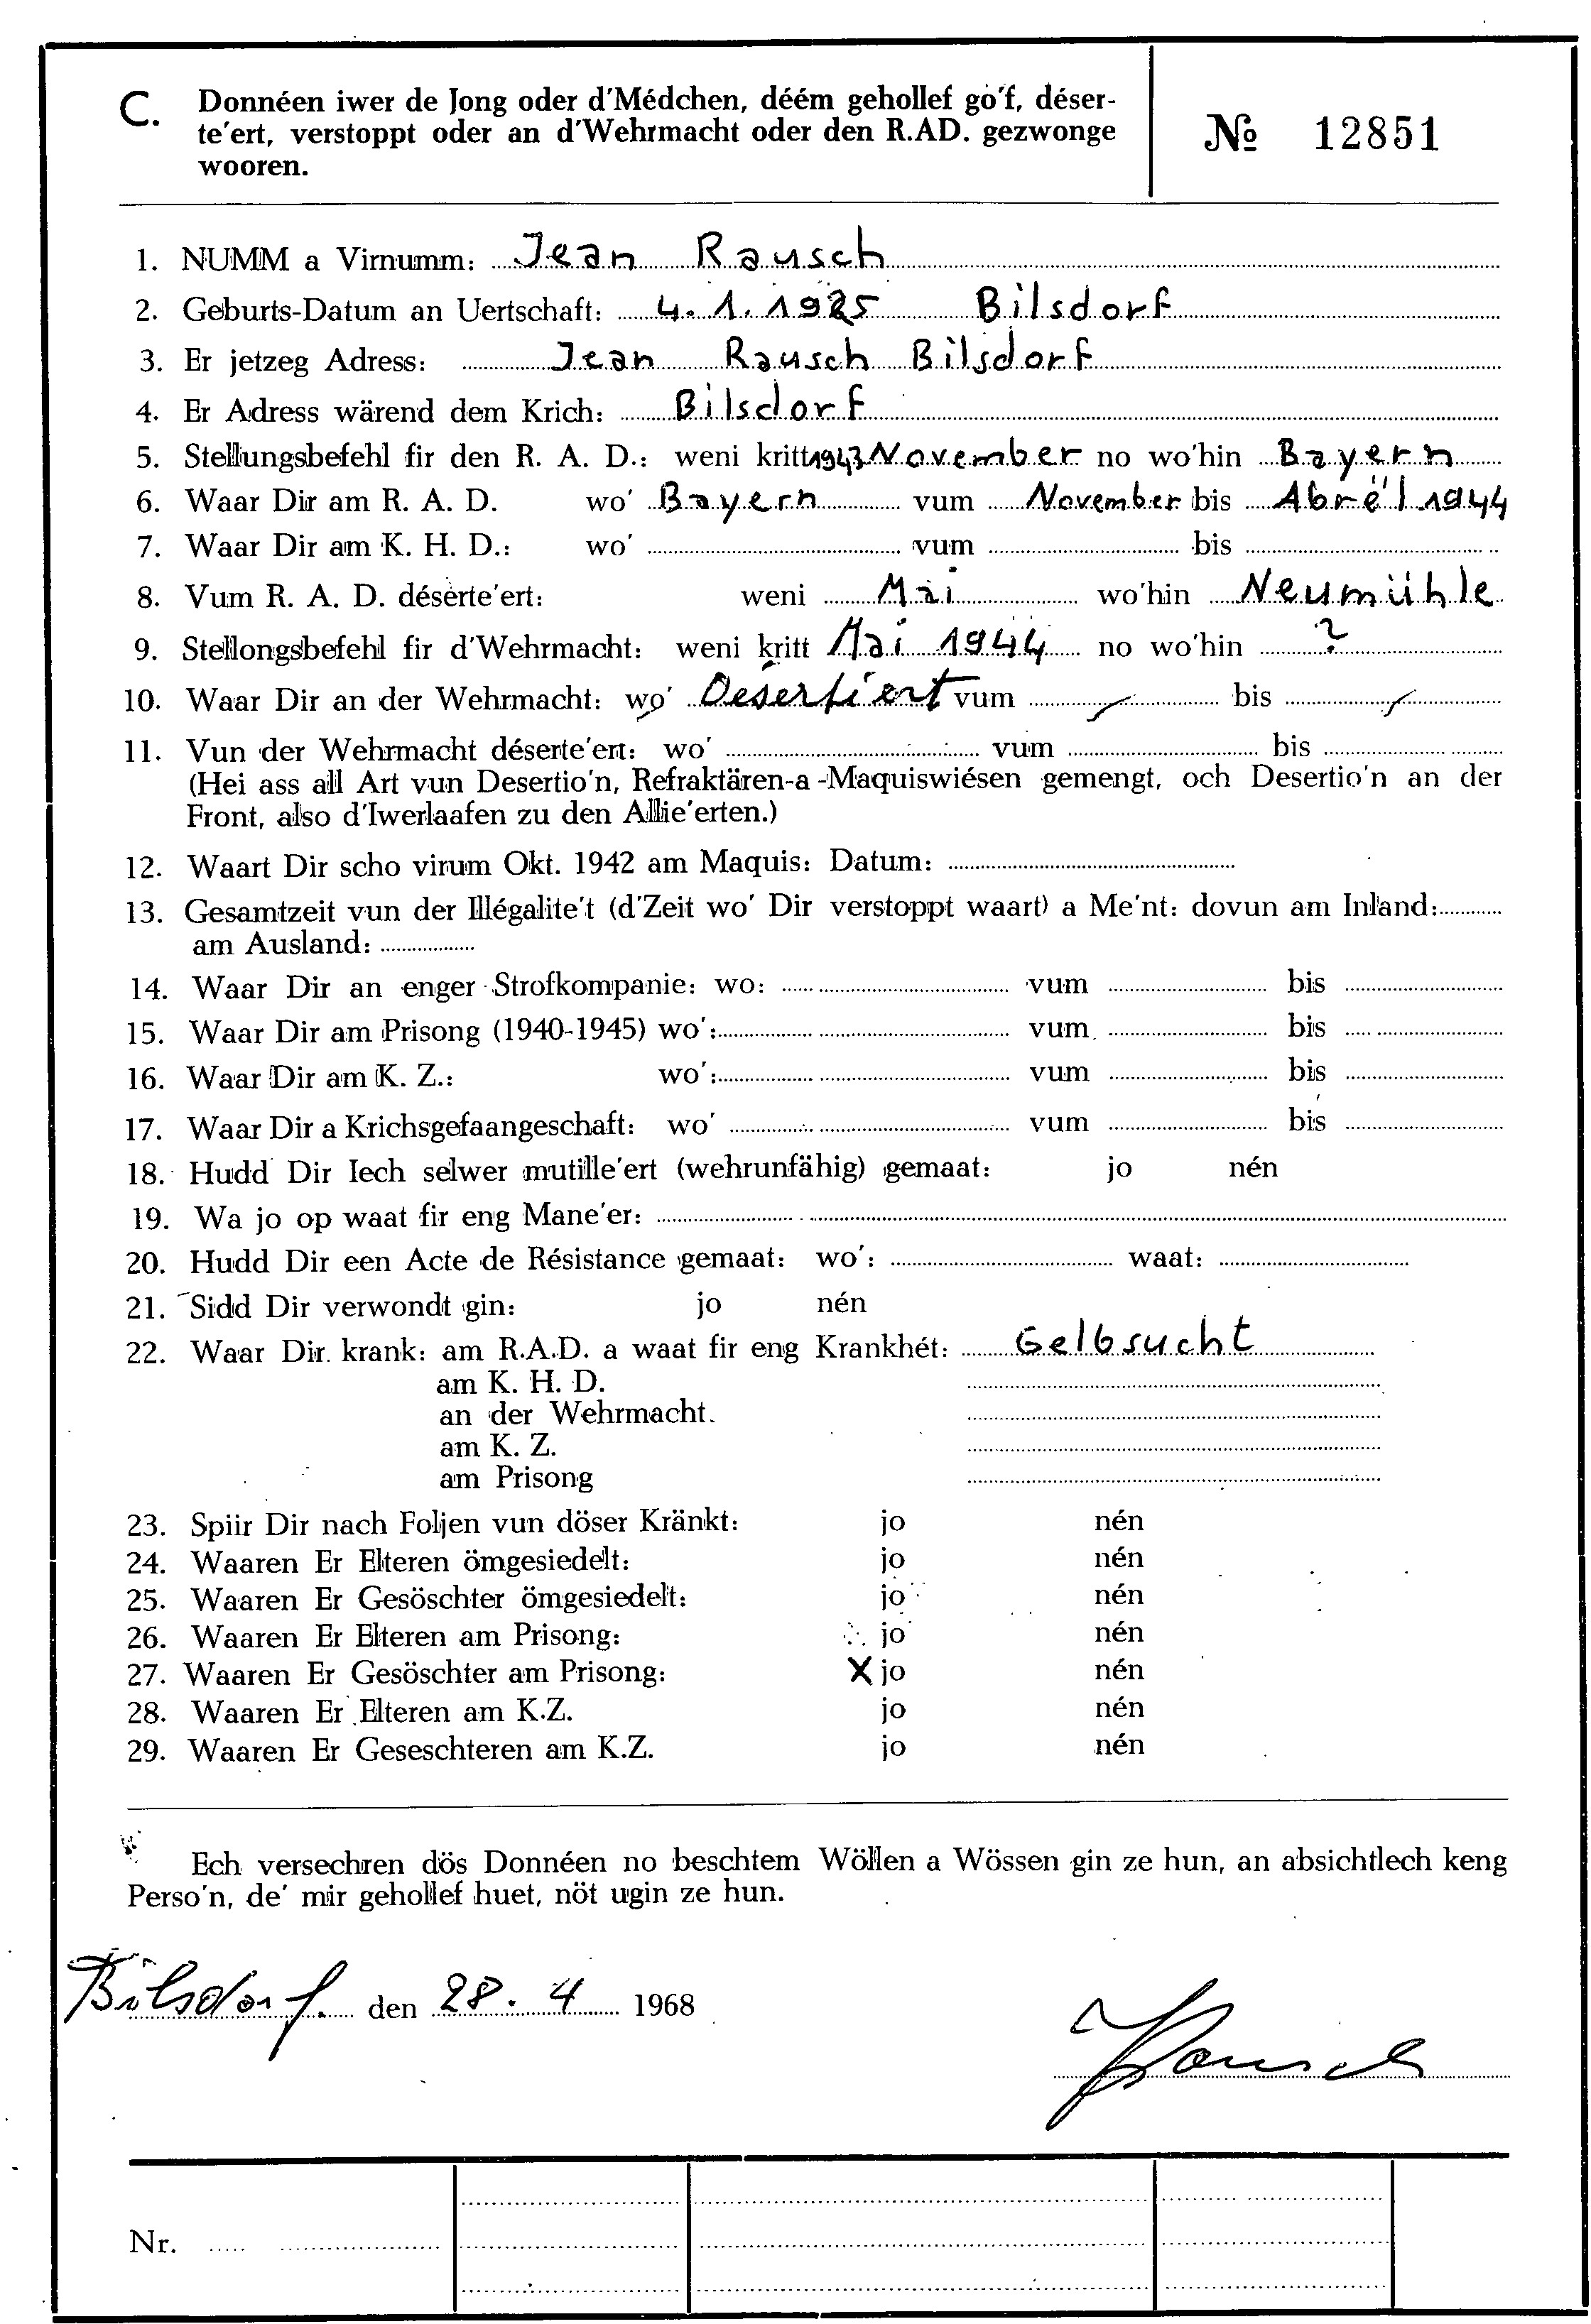 C. Donnéen iwer de Jong oder d'Médchen, déém gehollef go'f, déser-
te'ert, verstoppt oder an d'Wehrmacht oder den R.AD. gezwonge
wooren.
№ 12851
1. NUMM a Virnumm: Jean Rausch
2. Geburts-Datum an Uertschaft: 4. 1. 1925 Bilsdorf
3. Er jetzeg Adress: Jean Rausch Bilsdorf
4. Er Adress wärend dem Krich: Bilsdorf
5. Stellungsbefehl fir den R. A. D.: weni kritt 1943 November no wo'hin Bayern
6. Waar Dir am R. A. D. wo' Bayern vum November bis Abrël 1944
7. Waar Dir am K. H. D.: wo' vum bis
8. Vum R. A. D. déserte'ert: weni Mai wo'hin Neumühle
9. Stellongsbefehl fir d'Wehrmacht: weni kritt Mai 1944 no wo'hin ?
10. Waar Dir an der Wehrmacht: wo' Desertiert vum / bis /
11. Vun der Wehrmacht déserte'ert: wo' vum bis
(Hei ass all Art vun Desertio'n, Refraktären-a-Maquiswiésen gemengt, och Desertio'n an der
Front, also d'Iwerlaafen zu den Allie'erten.)
12. Waart Dir scho virum Okt. 1942 am Maquis: Datum:
13. Gesamtzeit vun der Illégalite't (d'Zeit wo' Dir verstoppt waart) a Me'nt: dovun am Inland:
am Ausland:
14. Waar Dir an enger Strofkompanie: wo: vum bis
15. Waar Dir am Prisong (1940-1945) wo': vum bis
16. Waar Dir am K. Z.: wo': vum bis
17. Waar Dir a Krichsgefaangeschaft: wo' vum bis
18. Hudd Dir Iech selwer mutille'ert (wehrunfähig) gemaat: jo nén
19. Wa jo op waat fir eng Mane'er:
20. Hudd Dir een Acte de Résistance gemaat: wo': waat:
21. Sidd Dir verwondt gin: jo nén
22. Waar Dir krank: am R.A.D. a waat fir eng Krankhét: Gelbsucht
am K. H. D.
an der Wehrmacht.
am K. Z.
am Prisong
23. Spiir Dir nach Foljen vun döser Kränkt: jo nén
24. Waaren Er Elteren ömgesiedelt: jo nén
25. Waaren Er Gesöschter ömgesiedelt: jo nén
26. Waaren Er Elteren am Prisong: jo nén
27. Waaren Er Gesöschter am Prisong: X jo nén
28. Waaren Er Elteren am K.Z. jo nén
29. Waaren Er Geseschteren am K.Z. jo nén
Ech versechren dös Donnéen no beschtem Wöllen a Wössen gin ze hun, an absichtlech keng
Perso'n, de' mir gehollef huet, nöt ugin ze hun.
Bilsdorf. den 28. 4 1968
Rausch
Nr.